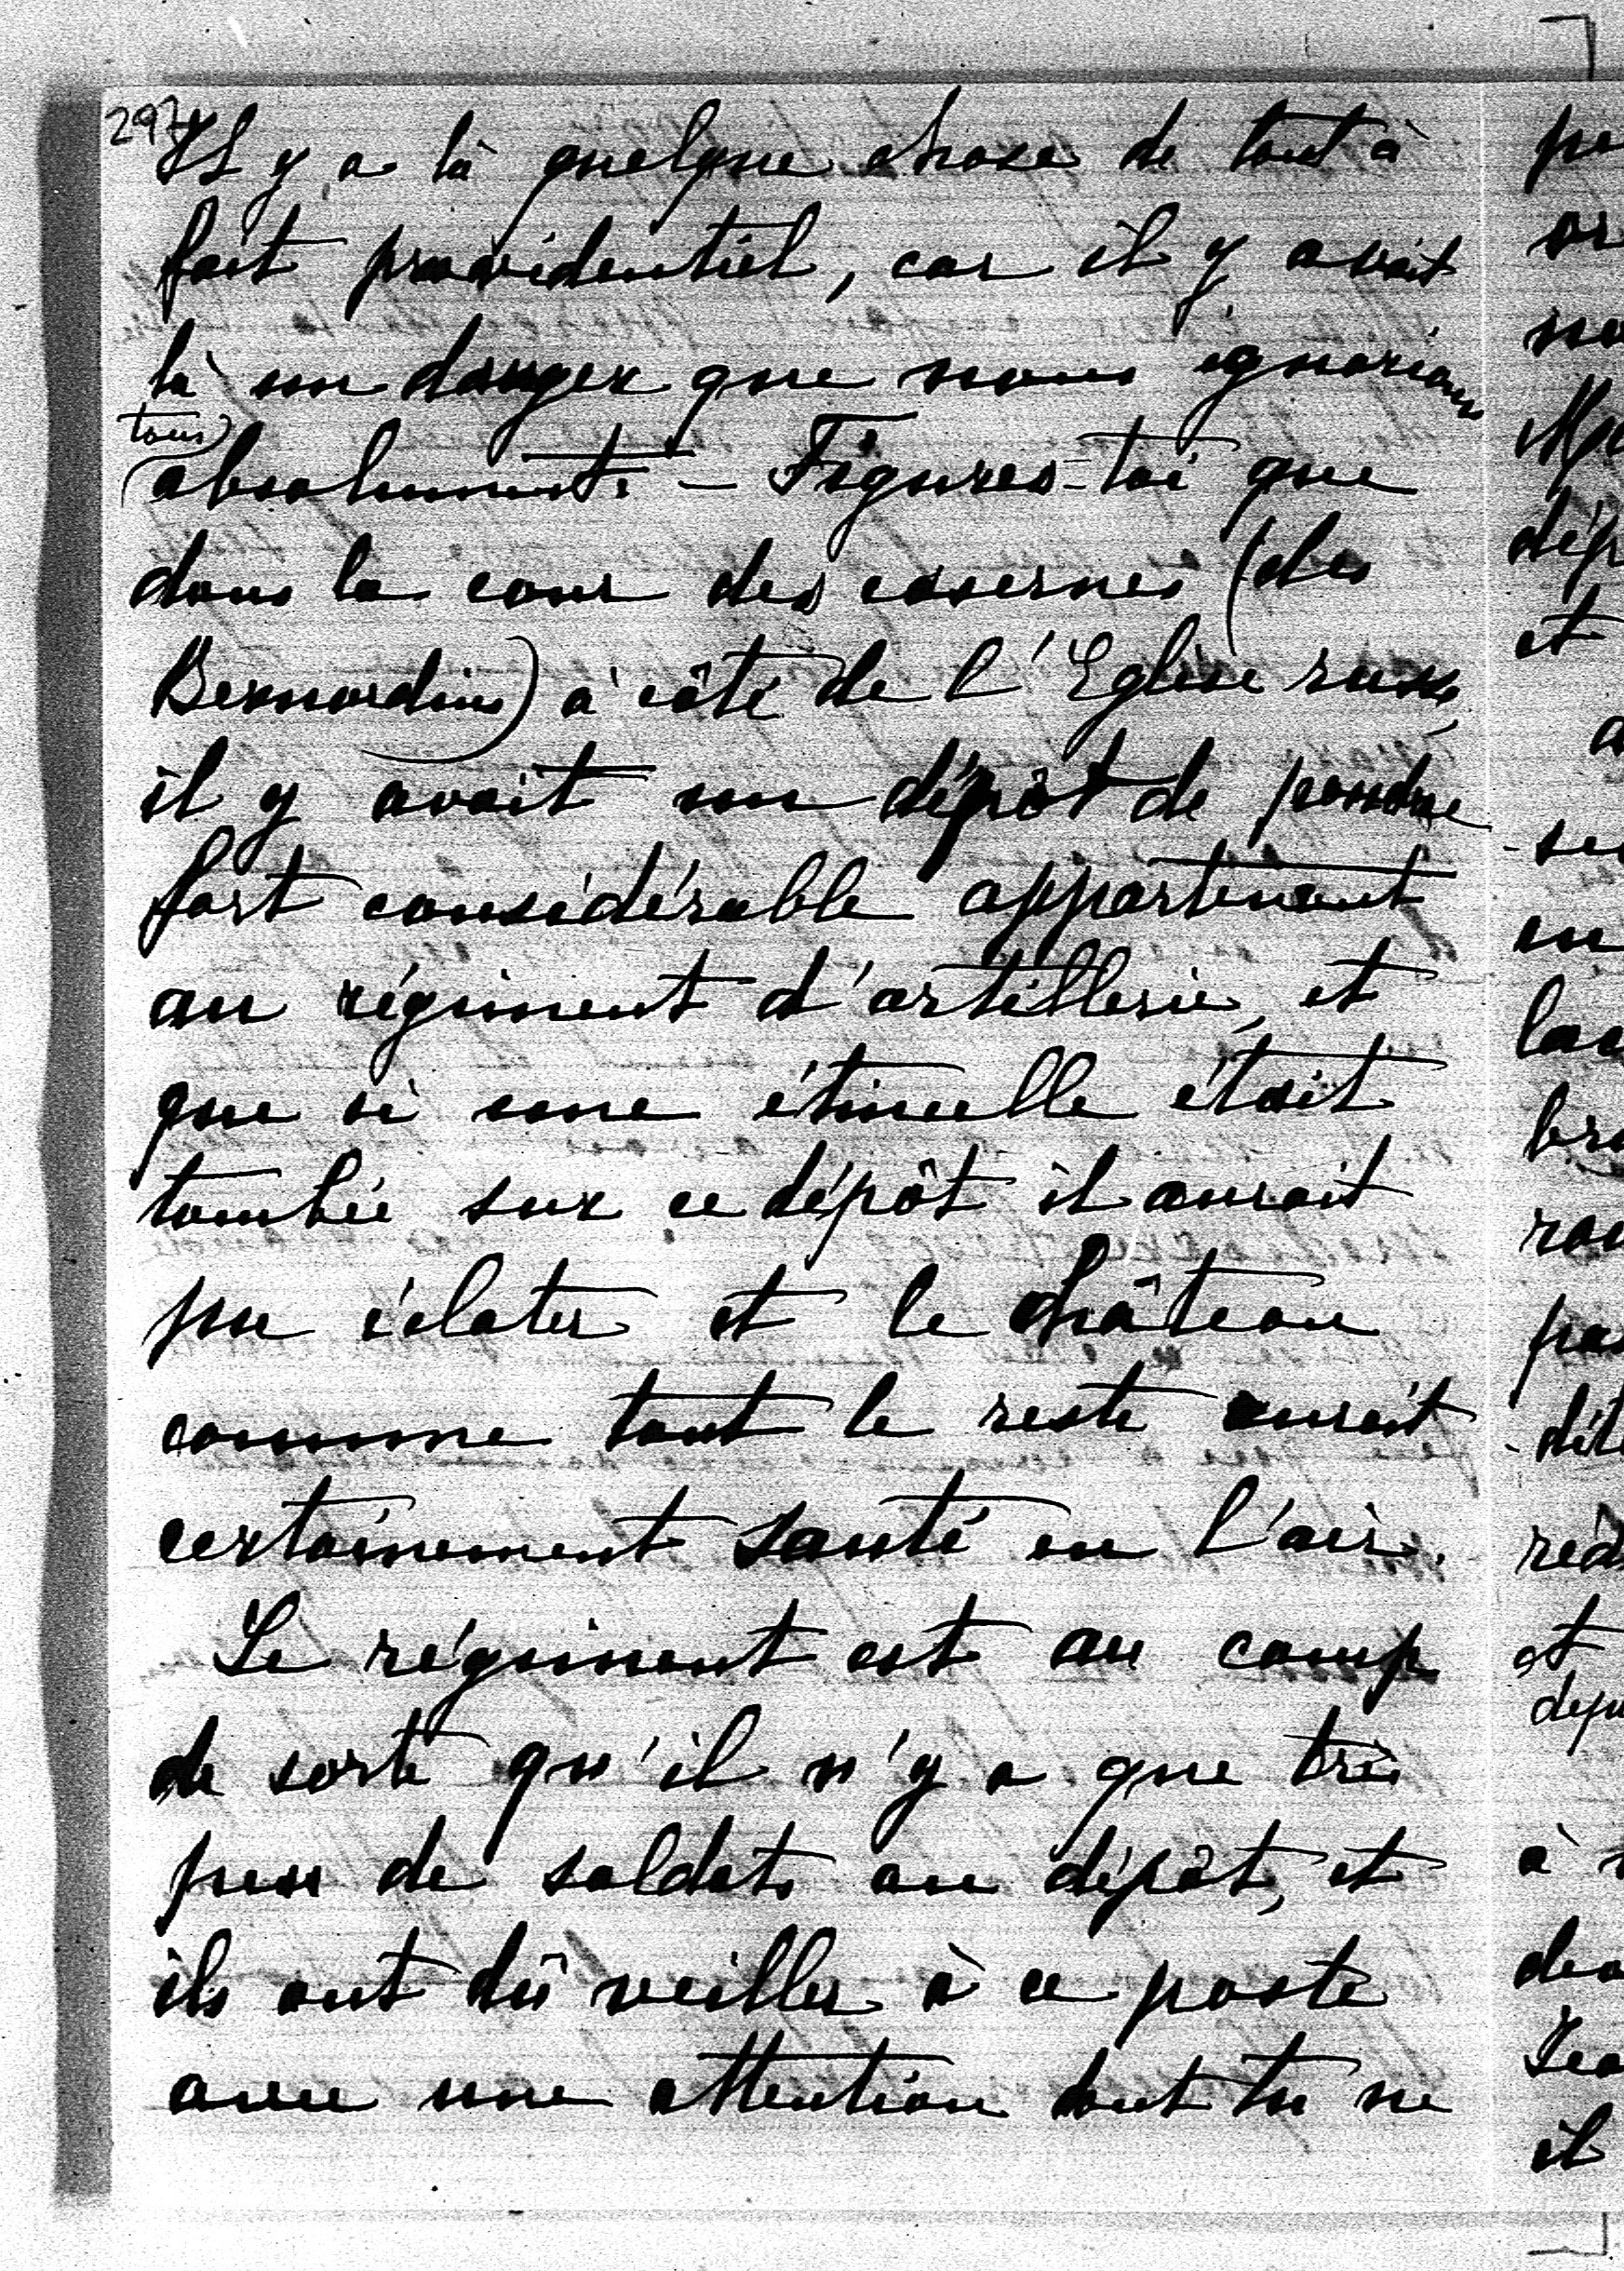 297
Il y a là quelque chose de tout à
fait providentiel, car il y avait
là un danger que nous ignorions
tous
absolument. — Figures-toi que
dans la cour des casernes (des
Bernardins) à côté de l'Eglise russe,
il y avait un dépôt de poudre
fort considérable appartenant
au régiment d'artillerie, et
que si une étincelle était
tombée sur ce dépôt il aurait
pu éclater et le château
comme tout le reste aurait
certainement sauté en l'air.
Le régiment est au camp
de sorte qu'il n'y a que très
peu de soldats au dépôt, et
ils ont dû veiller à ce poste
avec une attention dont tu ne